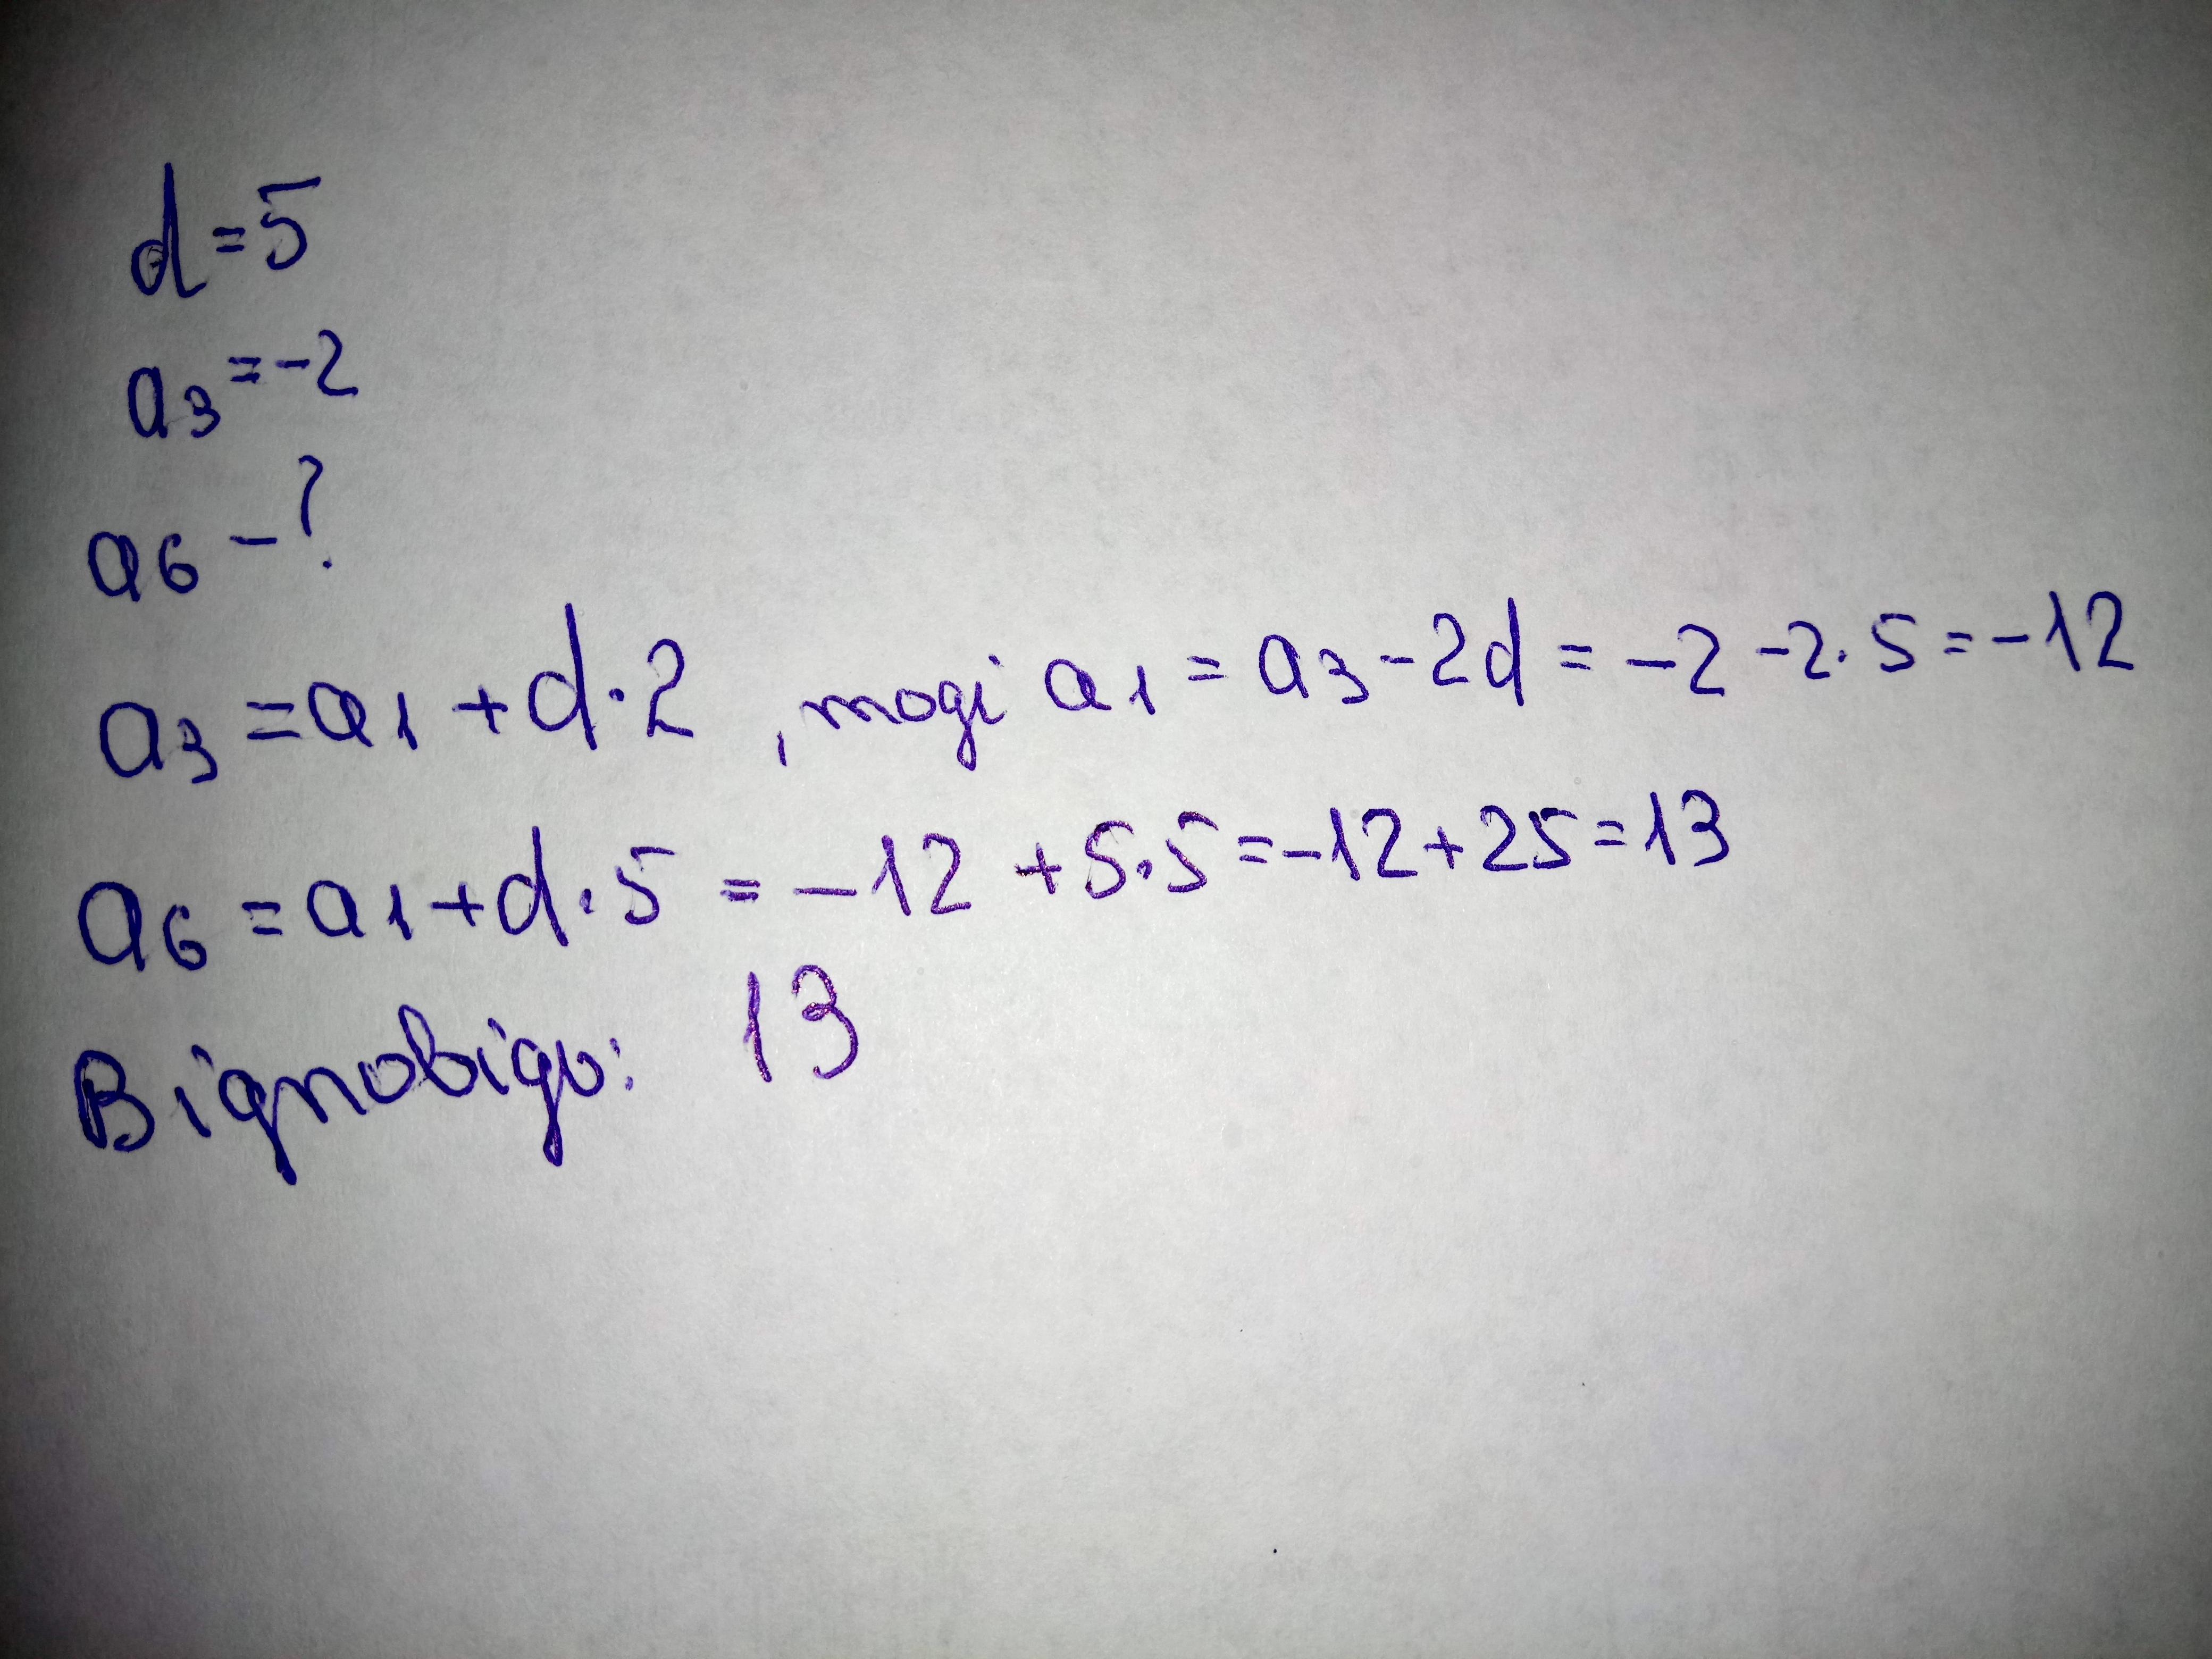 d=5
a₃=-2
a₆-?
a₃=a₁+d·2, тоді a₁=a₃-2d=-2-2·5=-12
a₆=a₁+d·5=-12+5·5=-12+25=13
Відповідь: 13